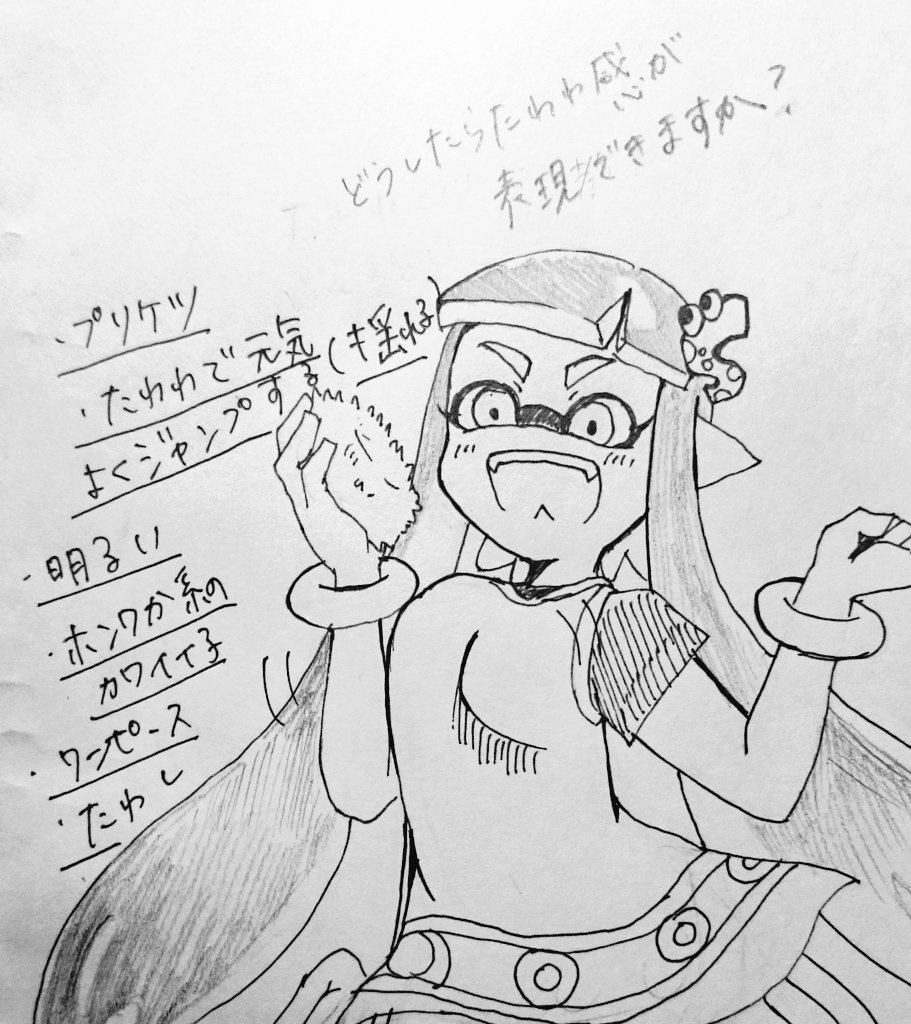 どうしたらたわわ感が
表現できますか?
・プリケツ
・たわわで元気
よくジャンプする(キ揺れる)
・明るい
・ホンワカ系の
カワイイ子
・ワンピース
・たわし